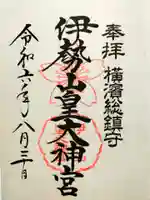 奉拝 横濱総鎮守
伊勢山皇大神宮
令和六年八月三十日